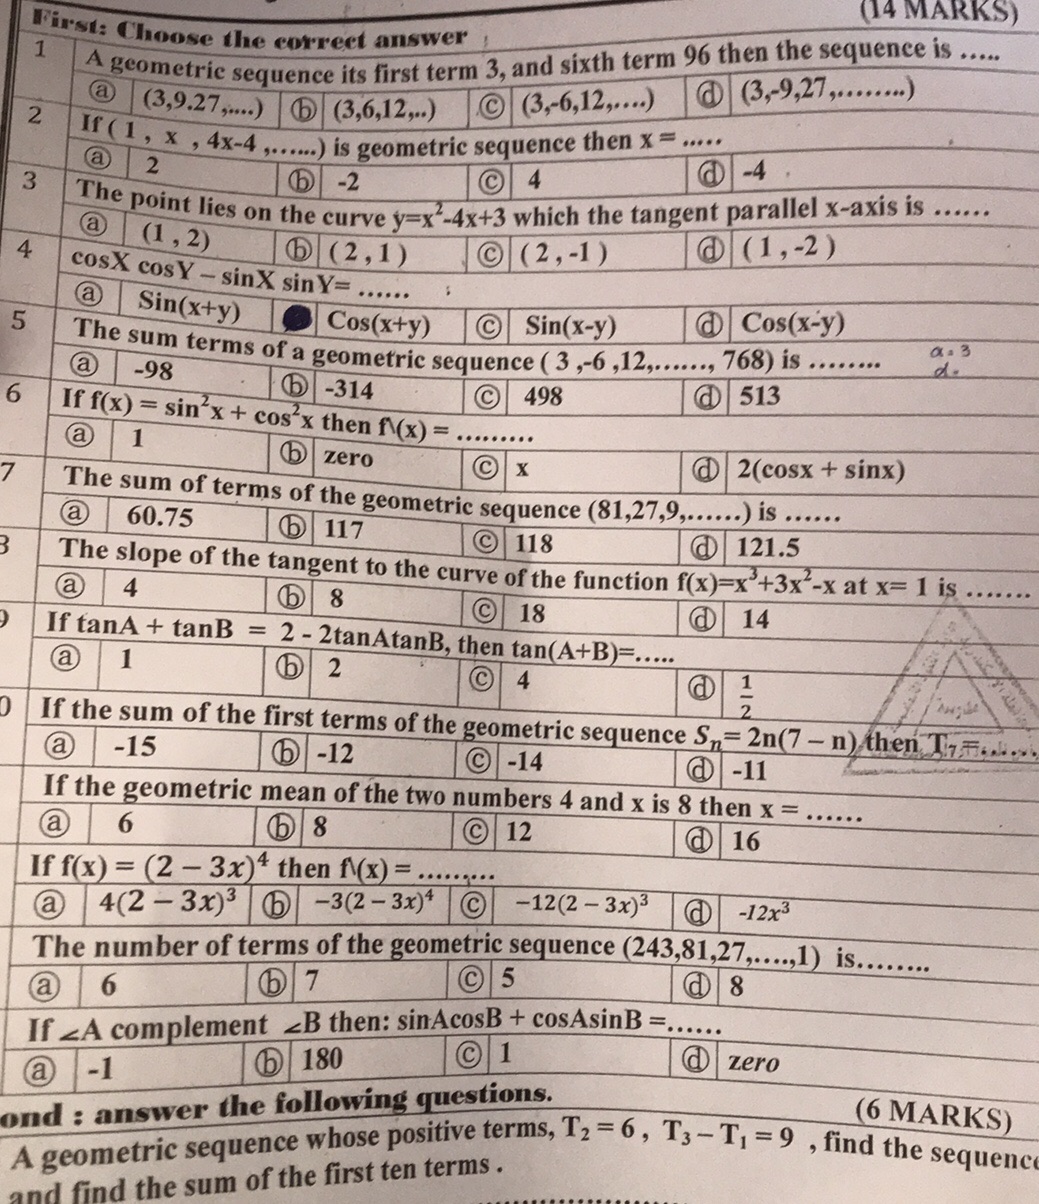 (14 MARKS)
First: Choose the correct answer
1 A geometric sequence its first term 3, and sixth term 96 then the sequence is .....
ⓐ (3,9.27,.....) ⓑ (3,6,12,..) ⓒ (3,-6,12,....) ⓓ (3,-9,27,........)
2 If ( 1 , x , 4x-4 ,......) is geometric sequence then x = .....
ⓐ 2 ⓑ -2 ⓒ 4 ⓓ -4
3 The point lies on the curve y=x²-4x+3 which the tangent parallel x-axis is ......
ⓐ (1 , 2) ⓑ ( 2 , 1 ) ⓒ ( 2 , -1 ) ⓓ ( 1 , -2 )
4 cosX cosY – sinX sinY= ......
ⓐ Sin(x+y) Cos(x+y) ⓒ Sin(x-y) ⓓ Cos(x-y)
5 The sum terms of a geometric sequence ( 3 ,-6 ,12,......, 768) is ........
a = 3
d =
ⓐ -98 ⓑ -314 ⓒ 498 ⓓ 513
6 If f(x) = sin²x + cos²x then f\(x) = .........
ⓐ 1 ⓑ zero ⓒ x ⓓ 2(cosx + sinx)
7 The sum of terms of the geometric sequence (81,27,9,......) is ......
ⓐ 60.75 ⓑ 117 ⓒ 118 ⓓ 121.5
The slope of the tangent to the curve of the function f(x)=x³+3x²-x at x= 1 is .......
ⓐ 4 ⓑ 8 ⓒ 18 ⓓ 14
If tanA + tanB = 2 - 2tanAtanB, then tan(A+B)=.....
ⓐ 1 ⓑ 2 ⓒ 4 ⓓ 1/2
0 If the sum of the first terms of the geometric sequence Sₙ= 2n(7 – n) then T₇=......
ⓐ -15 ⓑ -12 ⓒ -14 ⓓ -11
If the geometric mean of the two numbers 4 and x is 8 then x = ......
ⓐ 6 ⓑ 8 ⓒ 12 ⓓ 16
If f(x) = (2 – 3x)⁴ then f\(x) = .........
ⓐ 4(2 – 3x)³ ⓑ –3(2 – 3x)⁴ ⓒ –12(2 – 3x)³ ⓓ -12x³
The number of terms of the geometric sequence (243,81,27,....,1) is........
ⓐ 6 ⓑ 7 ⓒ 5 ⓓ 8
If ∠A complement ∠B then: sinAcosB + cosAsinB =......
ⓐ -1 ⓑ 180 ⓒ 1 ⓓ zero
ond : answer the following questions.
(6 MARKS)
A geometric sequence whose positive terms, T₂ = 6 , T₃ – T₁ = 9 , find the sequence
and find the sum of the first ten terms .